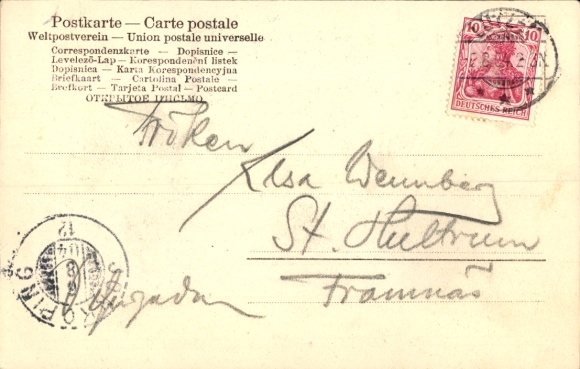 Postkarte — Carte postale
Weltpostverein — Union postale universelle
Correspondenzkarte — Dopisnice —
Levelező-Lap — Korespondenční lístek
Dopisnica — Karta Korespondencyjna
Briefkaart — Cartolina Postale —
Brefkort — Tarjeta Postal — Postcard
ОТКРЫТОЕ ПИСЬМО
10 10
DEUTSCHES REICH
Fröken
Elsa Wennberg
St. Hultrum
Framnäs